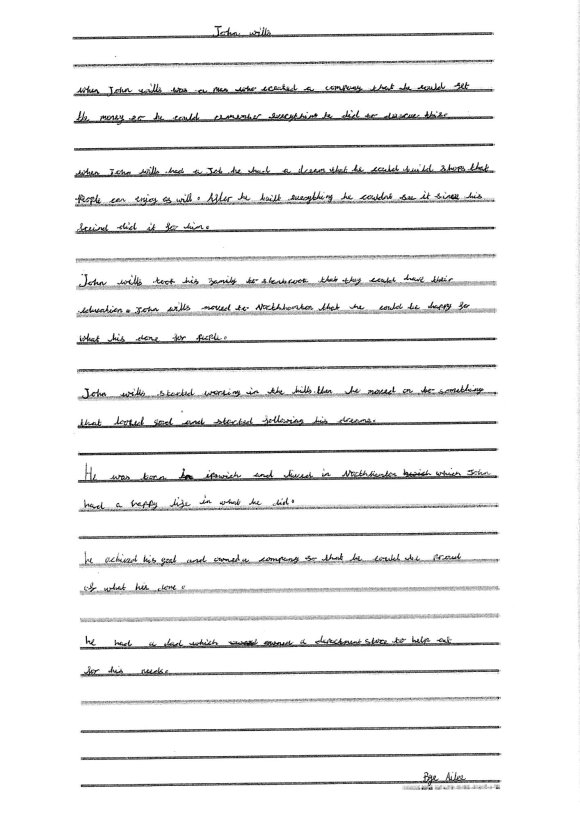 John wills
when John wills was a man who created a company that he could get
the money so he could remember everything he did so because their
when John wills had a Job he had a dream that he could build shops that
People can enjoy as will. After he built everything he couldnt see it since his
freind did it for him.
John wills took his family to that they could have their
education. John wills moved to Northhamton that he could be happy for
what his done for people.
John wills started working in the hills then he moved on to something
that looked good and started following his dreams.
He was born in ipswich and lived in Northhamton which John
had a happy life in what he did.
he achived his goal and owned a company so that he could be proud
of what his done.
he had a dad which owned a store to help out
for his needs.